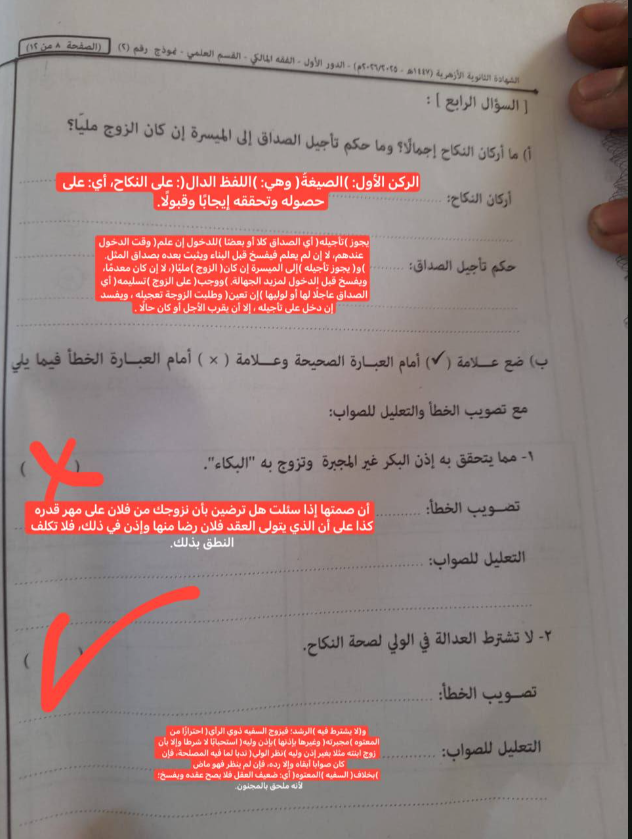 الشهادة الثانوية الأزهرية (١٤٤٧هـ - ٢٠٢٦/٢٠٢٥م) - الدور الأول - الفقه المالكي - القسم العلمي - نموذج رقم (٢) (الصفحة ٨ من ١٢)
[ السؤال الرابع ] :
أ) ما أركان النكاح إجمالًا؟ وما حكم تأجيل الصداق إلى الميسرة إن كان الزوج مليًا؟
الركن الأول: )الصيغة( وهي: )اللفظ الدال(: على النكاح، أي: على
أركان النكاح:
حصوله وتحققه إيجابًا وقبولًا.
يجوز )تأجيله( أي الصداق كلا أو بعضًا )للدخول إن علم( وقت الدخول
عندهم، لا إن لم يعلم فيفسخ قبل البناء ويثبت بعده بصداق المثل.
حكم تأجيل الصداق:
)و( يجوز تأجيله )إلى الميسرة إن كان( الزوج )مليًا(، لا إن كان معدمًا،
ويفسخ قبل الدخول لمزيد الجهالة. )ووجب( على الزوج )تسليمه( أي
الصداق عاجلًا لها أو لوليها )إن تعين( وطلبت الزوجة تعجيله ، ويفسد
إن دخل على تأجيله ، إلا أن يقرب الأجل أو كان حالًا .
ب) ضع علامة (✓) أمام العبارة الصحيحة وعلامة ( × ) أمام العبارة الخطأ فيما يلي
مع تصويب الخطأ والتعليل للصواب:
١- مما يتحقق به إذن البكر غير المجبرة وتزوج به "البكاء". ( )
أن صمتها إذا سئلت هل ترضين بأن نزوجك من فلان على مهر قدره
تصويب الخطأ:
كذا على أن الذي يتولى العقد فلان رضا منها وإذن في ذلك، فلا تكلف
النطق بذلك.
التعليل للصواب:
٢- لا تشترط العدالة في الولي لصحة النكاح. ( )
تصويب الخطأ:
و(لا يشترط فيه )الرشد؛ فيزوج السفيه ذوي الرأي( احترازًا من
المعتوه )مجبرته( وغيرها بإذنها )بإذن وليه( استحبابًا لا شرطا وإلا بأن
التعليل للصواب:
زوج ابنته مثلا بغير إذن وليه )نظر الولي( ندبا لما فيه المصلحة، فإن
كان صوابا أبقاه وإلا رده، فإن لم ينظر فهو ماض
)بخلاف( السفيه )المعتوه( أي: ضعيف العقل فلا يصح عقده ويفسخ؛
لأنه ملحق بالمجنون.